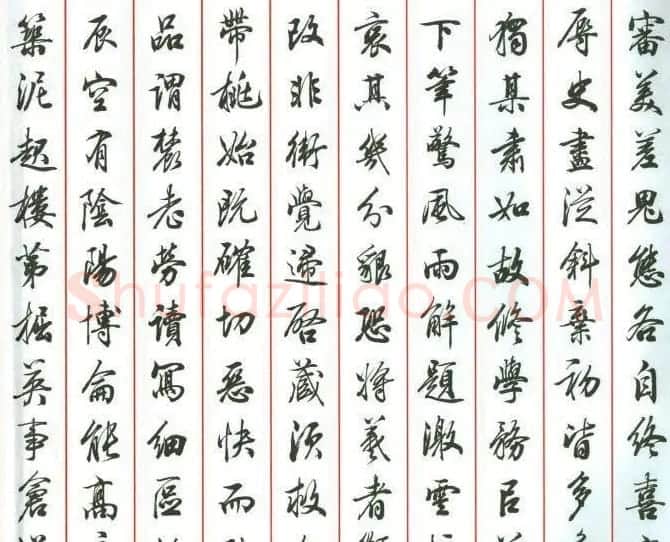 審美差異態各自終喜
辱史盡從斜棄初皆多
獨某肅如故修學務巨
下筆驚風雨解題激雲
哀其幾分貌恐將羲者
改非術覺遞啓蔵須救
帶桃始既確切惡快而
品謂若老勞讀寫細區
辰空有陰陽博侖能高
築泥起樓第掘英事倉
Shufaziliao.COM